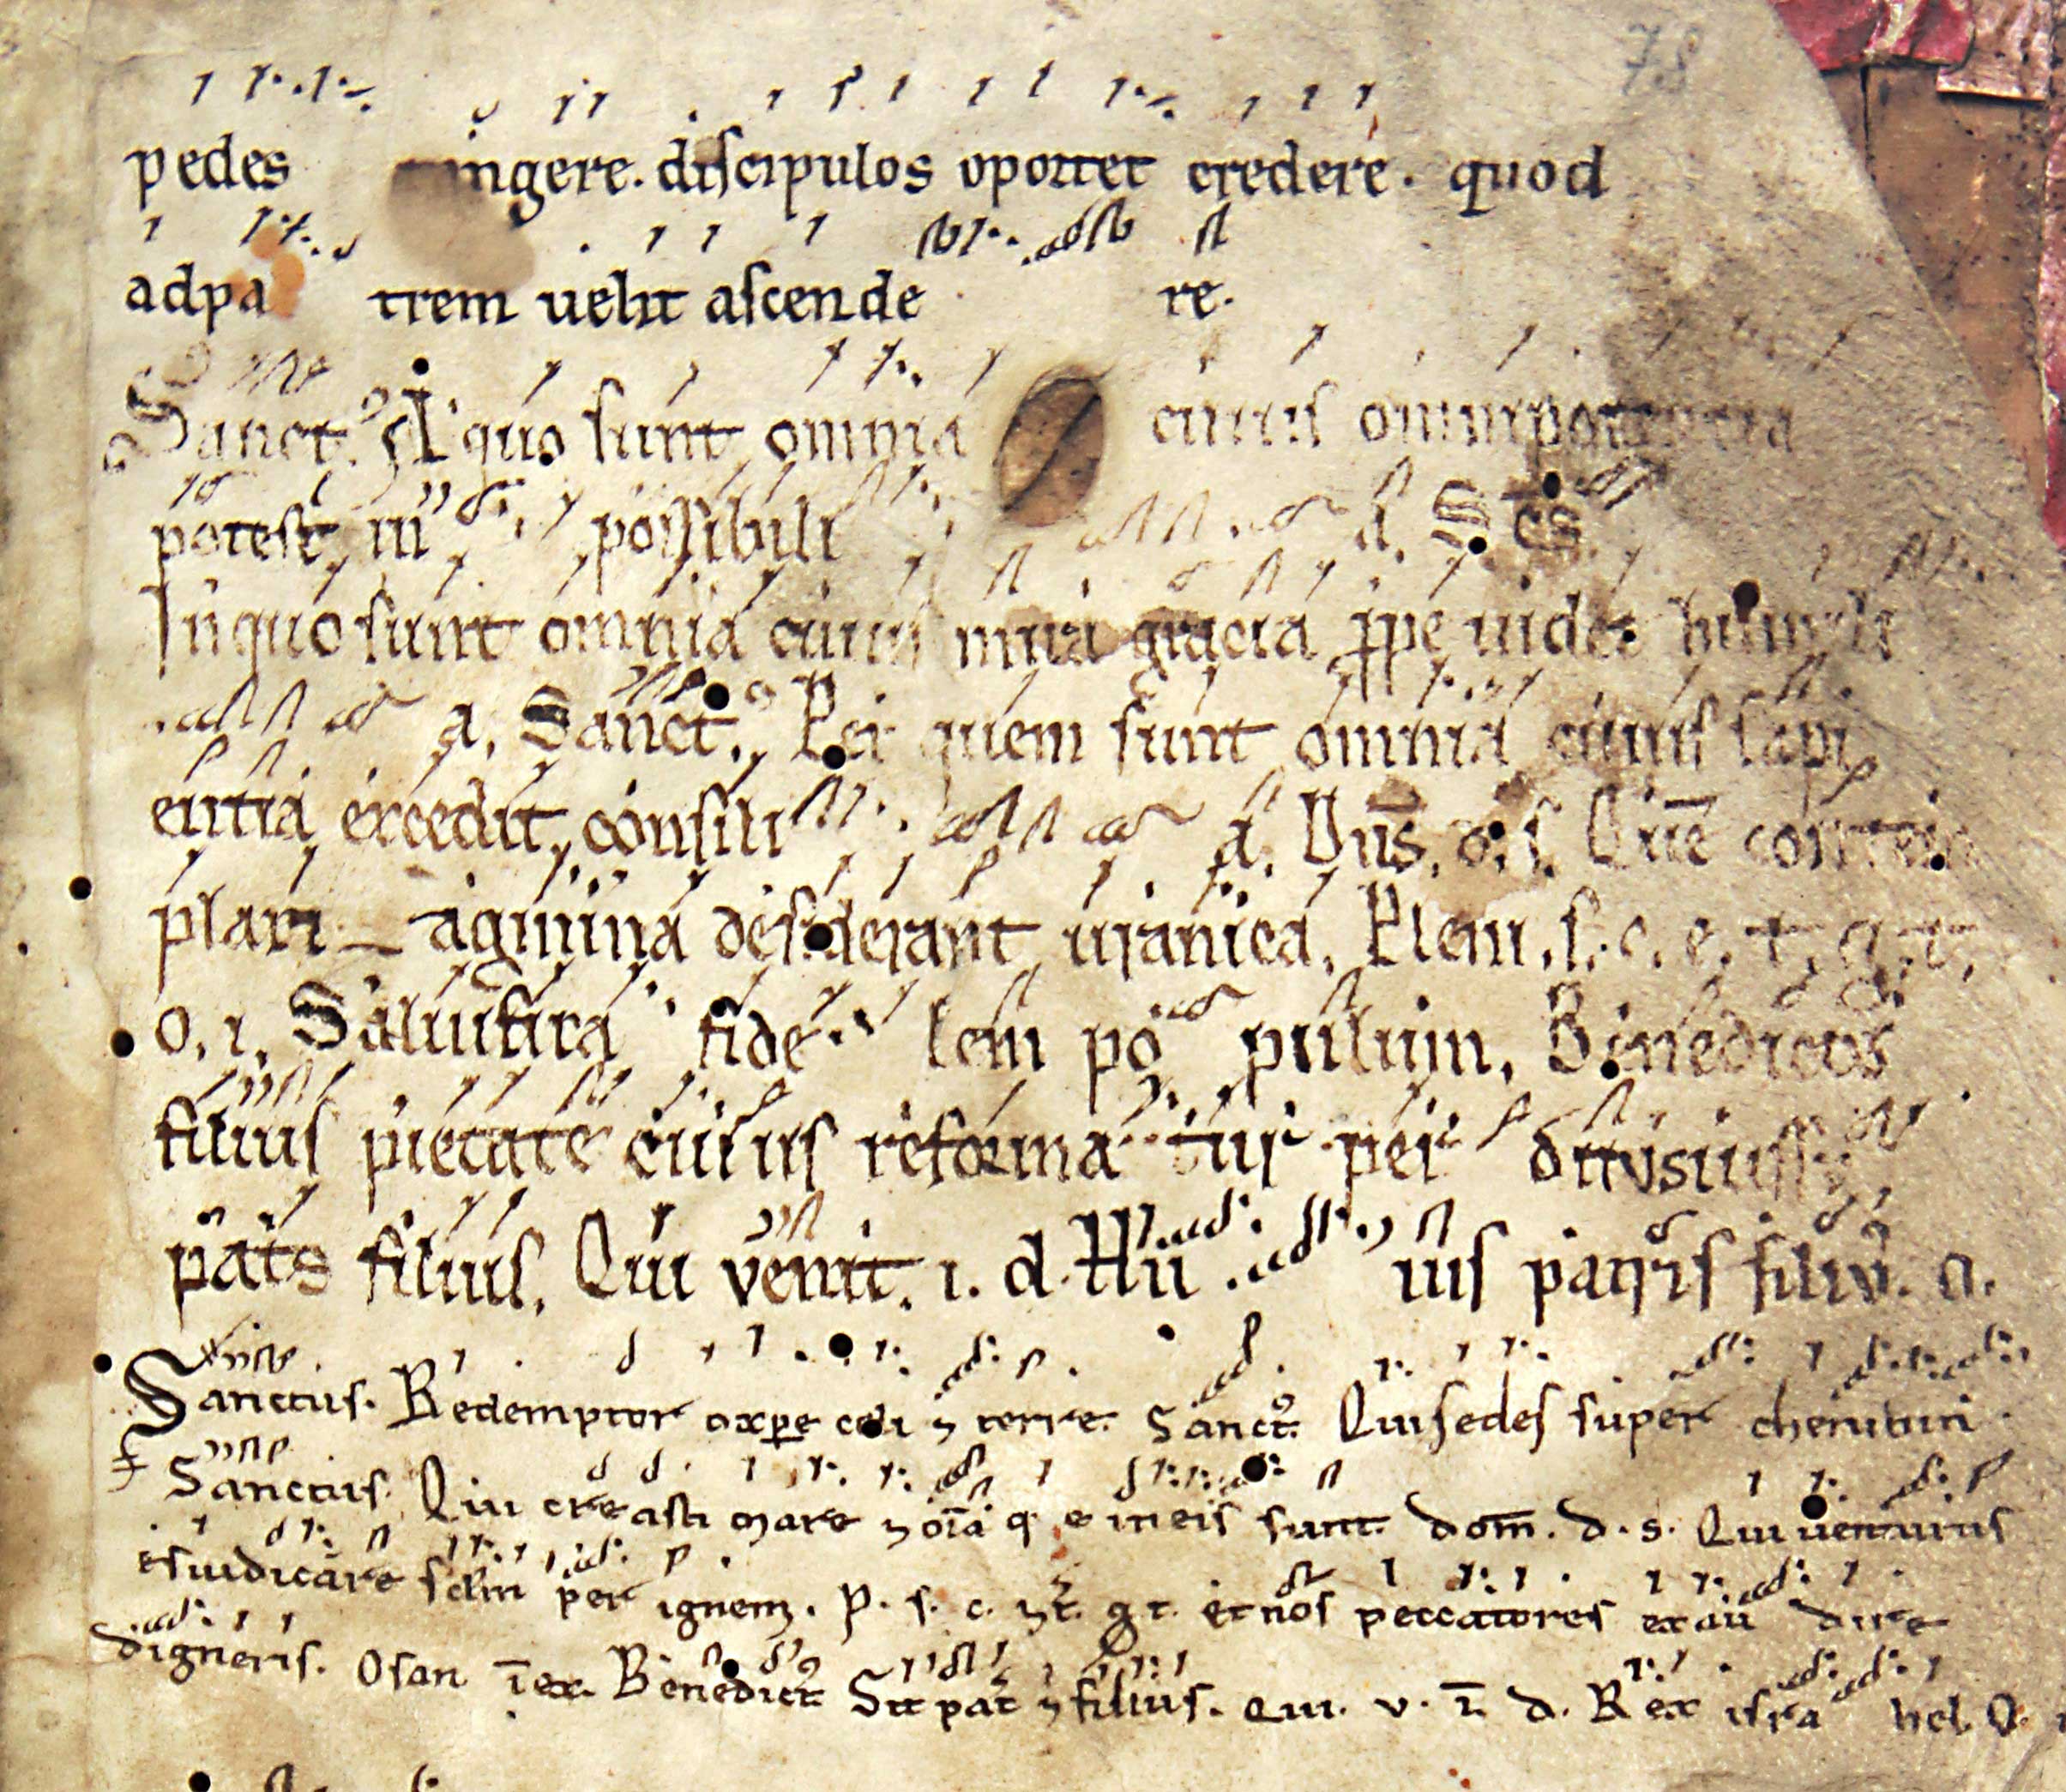 78
pedes ingere. discipulos oportet credere. quod
adpa trem uelit ascende re.
Sanct⁹ A quo sunt omnia cuius omnipotentia
potest, in possibili a. Scs
Inquo sunt omnia cuius mira gracia ꝓpe uidet humili
a. Sanct⁹. Per quem sunt omnia cuius sapi
entia excedit consili a. Dns. d. s. Que contem
plari agmina desiderant uranica. Pleni. s. c. e. t. g. t.
o. i. Saluifica fide lem po pulum, Benedictus
filius pietate cuius reforma tur per
patris filius. Qui venit. i. d. uis patris filiu. o.
Sanctus. Redemptor celi ⁊ terre. Sanct⁹. Qui sedes super cherubin.
Sanctus. Qui creasti mare ⁊ oia q in eis sunt. dom. d. s. Qui uenturus
es iudicare sclm per ignem. P. s. c. ⁊ t. g t. et nos peccatores exau dire
digneris. Osan i ex. Benedict⁹ Sit pat ⁊ filius. Qui. v. i. d. Rex isra hel. O.